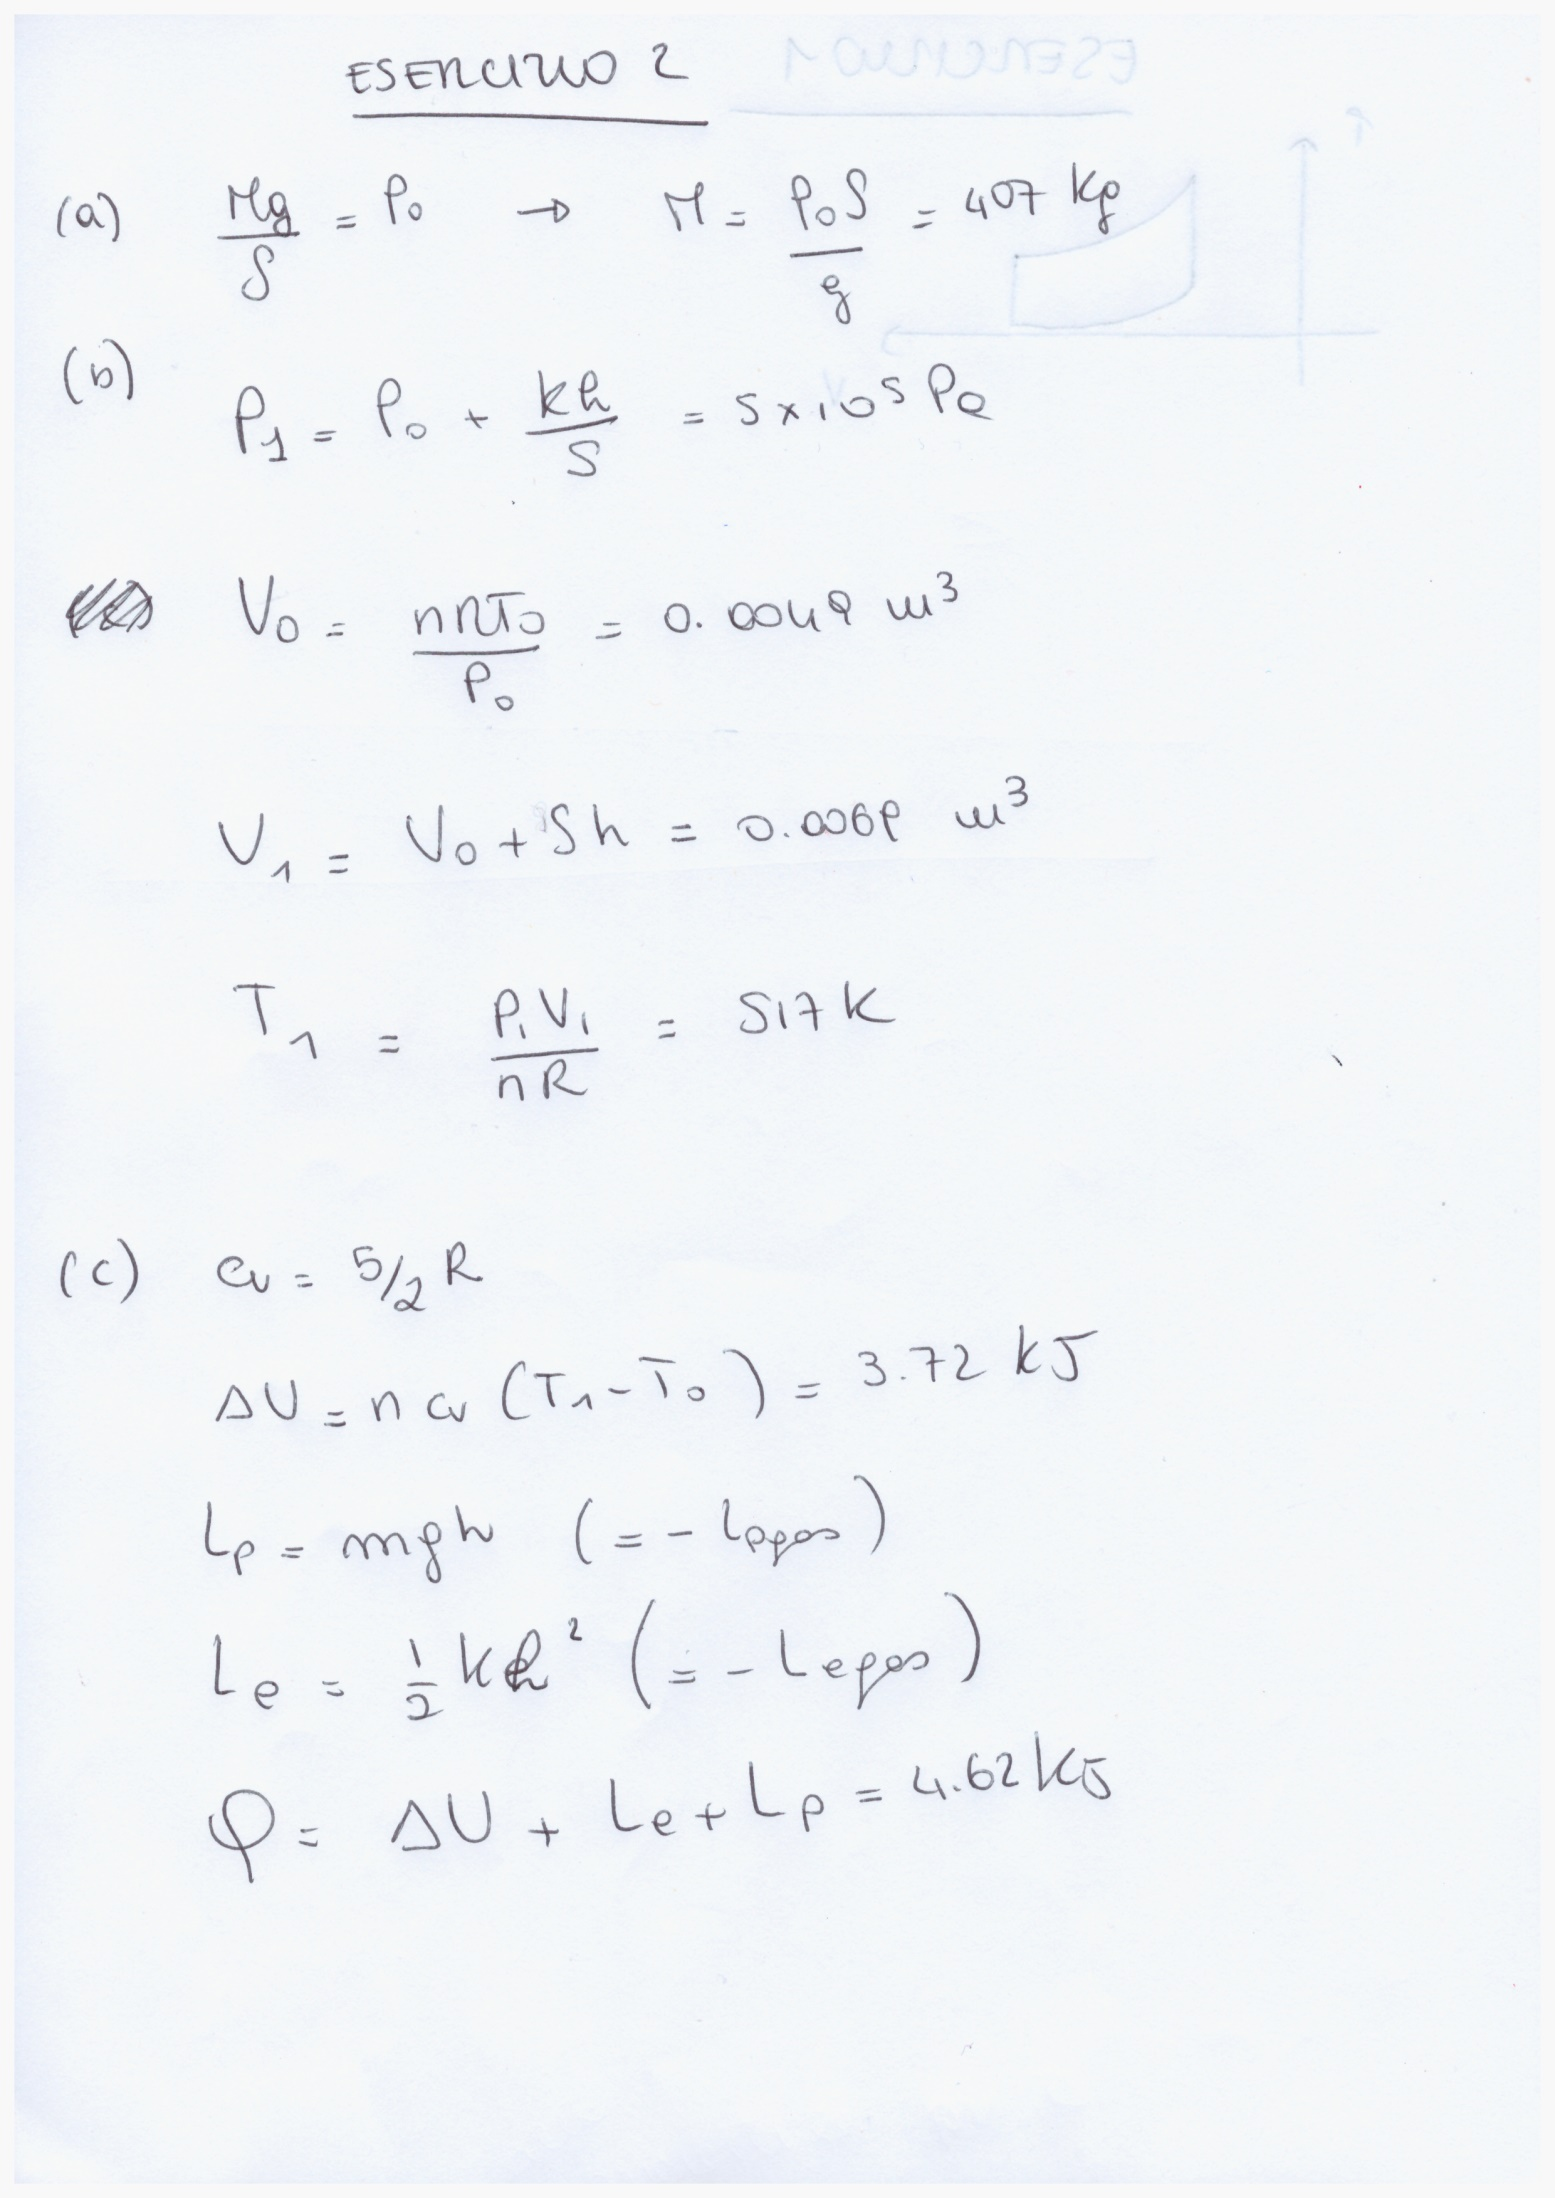 ESERCIZIO 2
(a) Mg/S = P₀ → M = P₀S/g = 407 Kg
(b) P₁ = P₀ + kh/S = 5×10⁵ Pa
V₀ = nRT₀/P₀ = 0.0049 m³
V₁ = V₀ + Sh = 0.0069 m³
T₁ = P₁V₁/nR = 517 K
(c) cv = 5/2 R
ΔU = n cv (T₁ - T₀) = 3.72 kJ
Lp = mgh (= - Lpgas)
Le = 1/2 kh² (= - Legas)
Q = ΔU + Le + Lp = 4.62 kJ